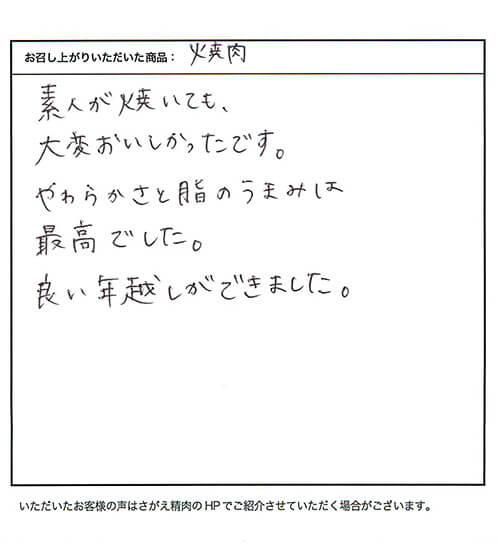 お召し上がりいただいた商品: 焼肉
素人が焼いても、
大変おいしかったです。
やわらかさと脂のうまみは
最高でした。
良い年越しができました。
いただいたお客様の声はさがえ精肉のHPでご紹介させていただく場合がございます。